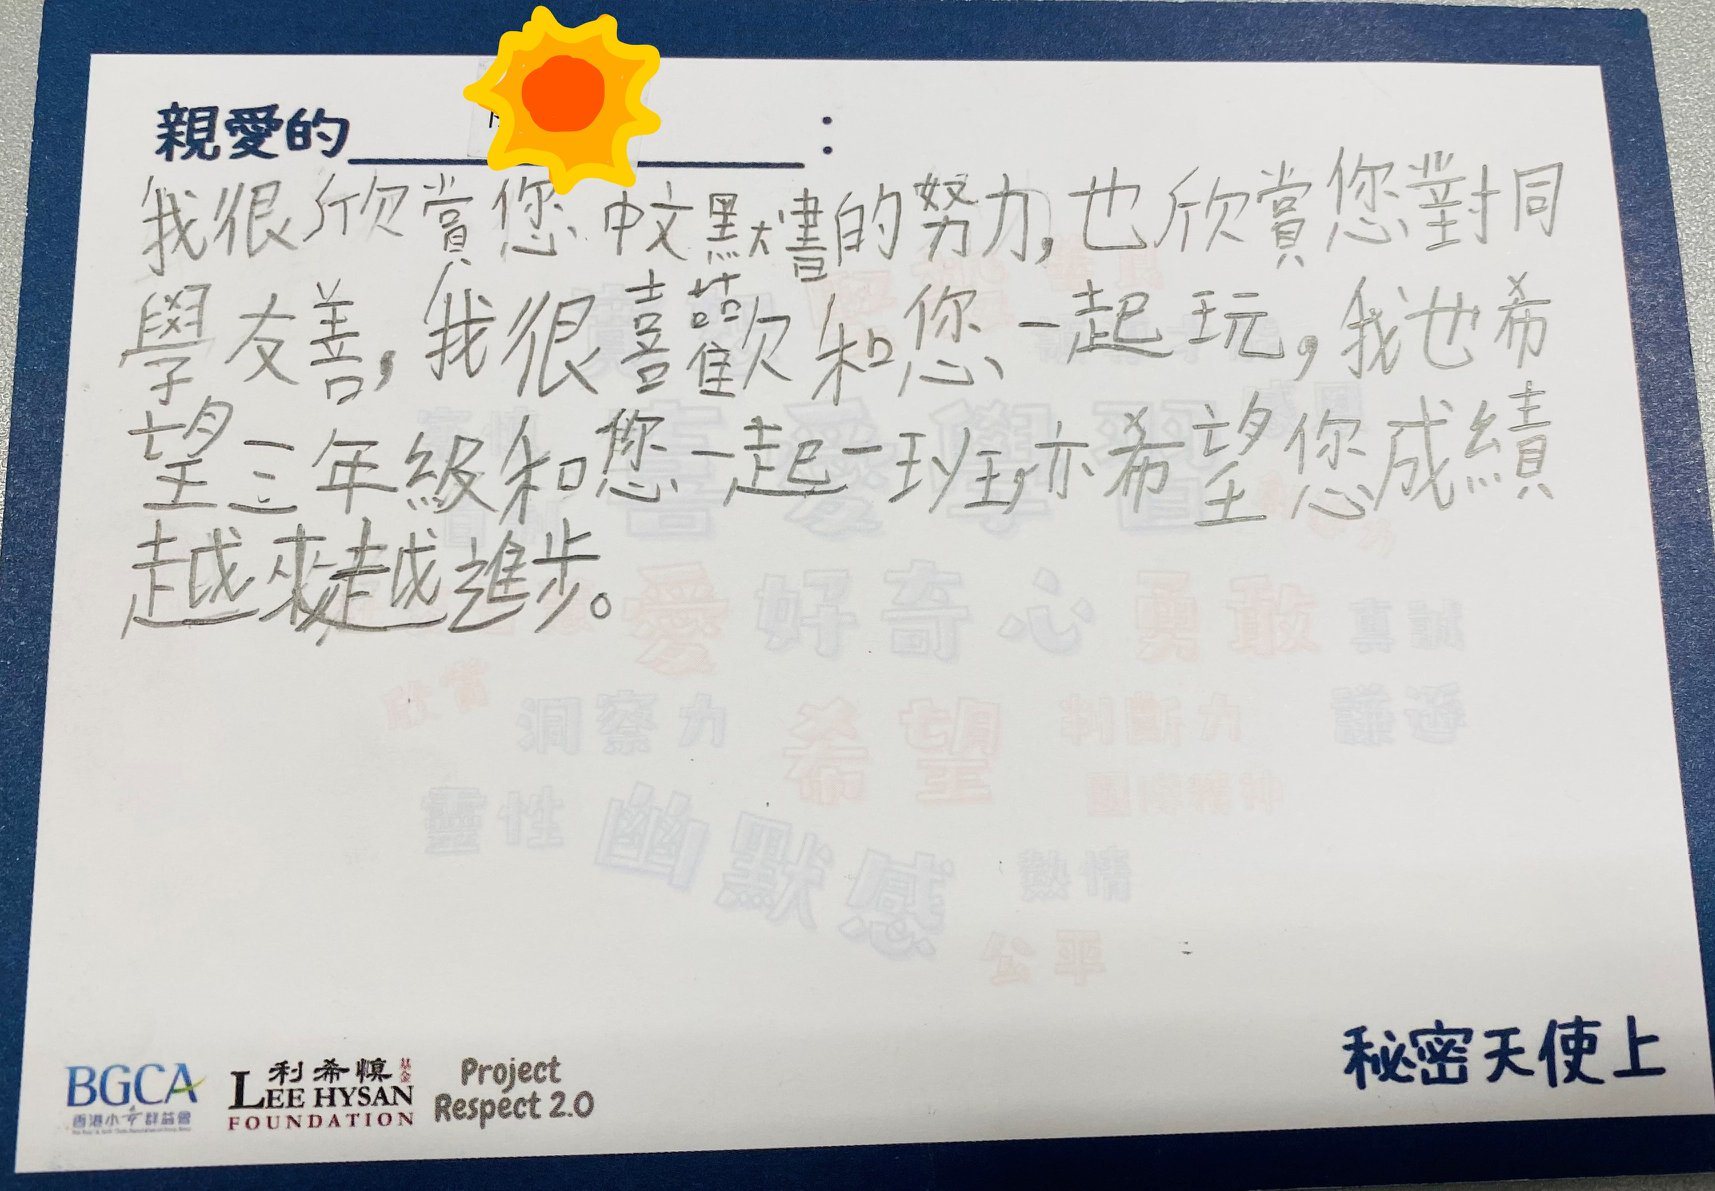 親愛的 :
我很欣賞您中文默書的努力,也欣賞您對同
學友善,我很喜歡和您一起玩,我也希
望三年級和您一起一班,亦希望您成績
越來越進步。
喜愛學習
愛 好奇心 勇敢 真誠
欣賞 洞察力 希望 判斷力 謙遜
團隊精神
靈性 幽默感 熱情
公平
秘密天使上
BGCA
香港小童群益會
利希慎基金
LEE HYSAN
FOUNDATION
Project
Respect 2.0